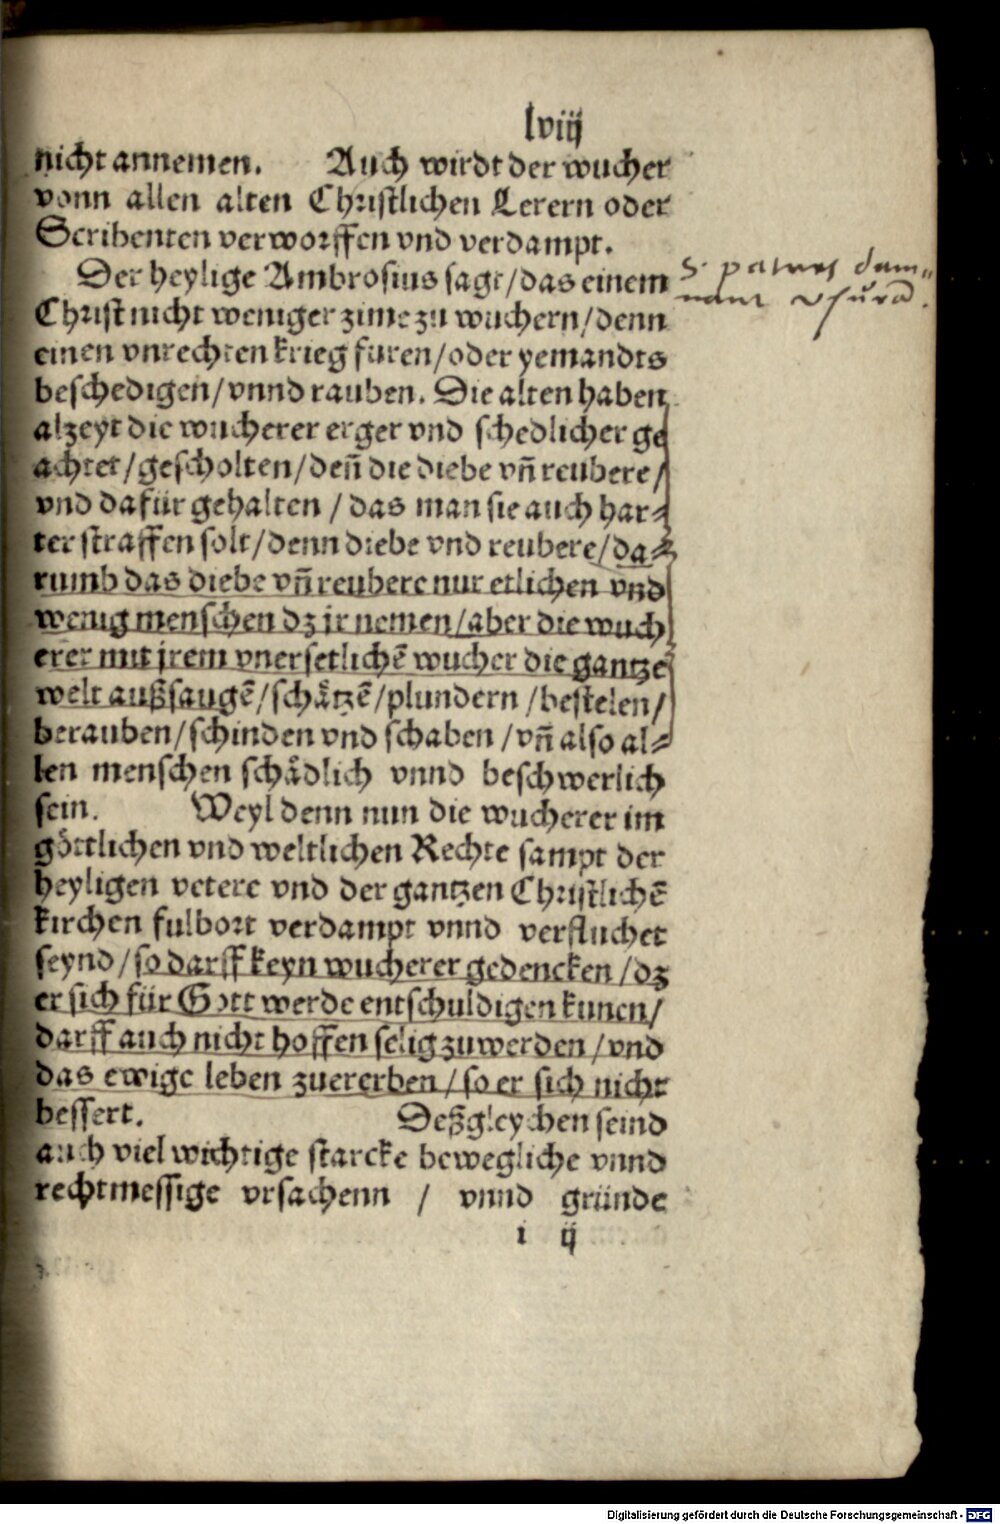 lviij
nicht annemen. Auch wirdt der wucher
vonn allen alten Christlichen Lerern oder
Scribenten verworffen vnd verdampt.
Der heylige Ambrosius sagt/das einem
Christ nicht weniger zime zu wuchern/denn
einen vnrechten krieg furen/oder yemandts
beschedigen/vnnd rauben. Die alten haben
alzeyt die wucherer erger vnd schedlicher ge
achtet/gescholten/deñ die diebe vñ reubere/
vnd dafür gehalten / das man sie auch har⸗
ter straffen solt/denn diebe vnd reubere/da⸗
rumb das diebe vñ reubere nur etlichen vnd
wenig menschen dz ir nemen/aber die wuch
erer mit jrem vnersetlichē wucher die gantze
welt außsaugē/schåtzē/plundern/bestelen/
berauben/schinden vnd schaben/vñ also al⸗
len menschen schådlich vnnd beschwerlich
sein. Weyl denn nun die wucherer im
göttlichen vnd weltlichen Rechte sampt der
heyligen vetere vnd der gantzen Christlichē
kirchen fulbort verdampt vnnd verfluchet
seynd/so darff keyn wucherer gedencken/dz
er sich für Gott werde entschuldigen kunen/
darff auch nicht hoffen selig zuwerden/vnd
das ewige leben zuererben/so er sich nicht
bessert. Deßgleychen seind
auch viel wichtige starcke bewegliche vnnd
rechtmessige vrsachenn / vnnd gründe
i ij
S. patres dam⸗
nant vsurā.
Digitalisierung gefördert durch die Deutsche Forschungsgemeinschaft - DFG